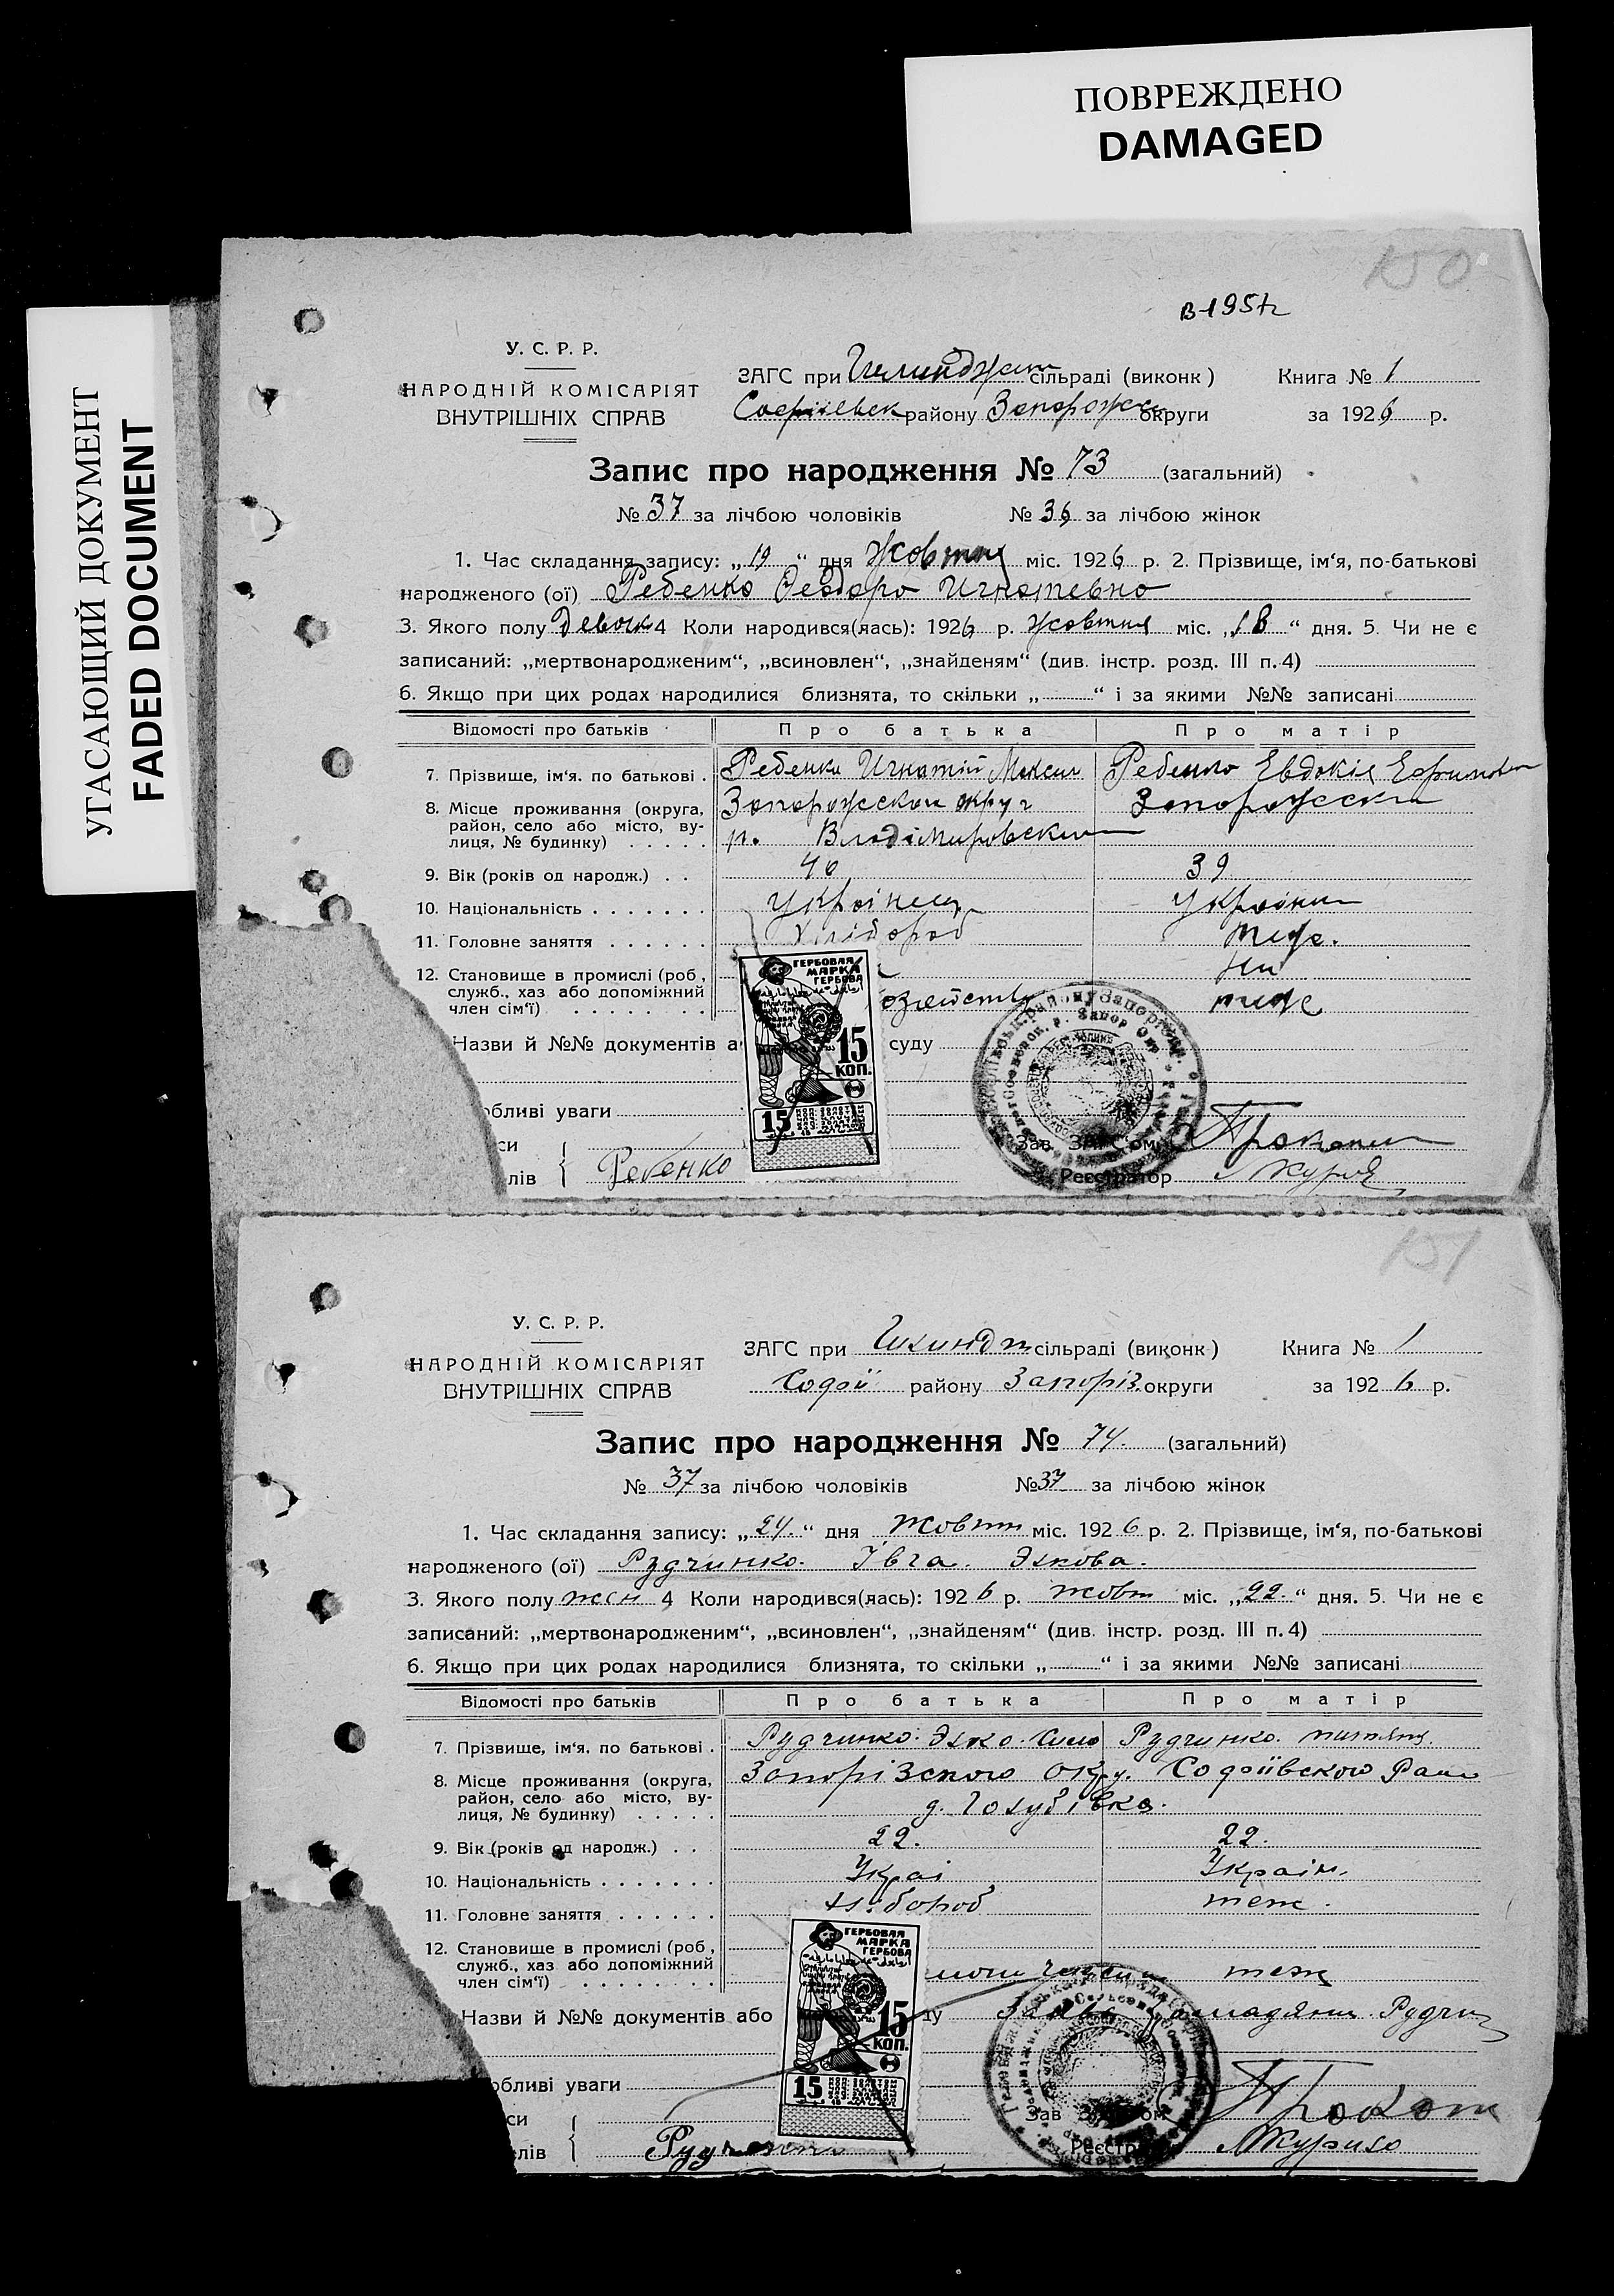 ПОВРЕЖДЕНО
DAMAGED
УГАСАЮЩИЙ ДОКУМЕНТ
FADED DOCUMENT
150
В-195
У. С. Р. Р.
НАРОДНІЙ КОМІСАРІЯТ
ВНУТРІШНІХ СПРАВ
ЗАГС при сільраді (виконк) Книга № 1
Софіевск району Запорожск округи за 1926 р.
Запис про народження № 73 (загальний)
№ 37 за лічбою чоловіків № 36 за лічбою жінок
1. Час складання запису: „19“ дня Жовтня міс. 1926 р. 2. Прізвище, ім‘я, по-батькові
народженого (ої) Ребенко Феодора Игнатевна
3. Якого полу Девочк 4 Коли народився(лась): 1926 р. жовтня міс. „18“ дня. 5. Чи не є
записаний: „мертвонародженим“, „всиновлен“, „знайденям“ (див. інстр. розд. III п. 4)
6. Якщо при цих родах народилися близнята, то скільки „ “ і за якими №№ записані
Відомості про батьків Про батька Про матір
7. Прізвище, ім‘я. по батькові . Ребенко Игнатій Максим Ребенко Евдокія Ефимовн
8. Місце проживання (округа, Запорожскои округ Запорожски
район, село або місто, ву- р. Владімировски
лиця, № будинку) . . . . .
9. Вік (років од народж.) . . 40 39
10. Національність . . . . . . . Украінец Украін
11. Головне заняття . . . . . . Хлібороб теж.
12. Становище в промислі (роб.,
служб., хаз або допоміжний
член сім‘ї) . . . . . . . . озяйство теже
Назви й №№ документів а суду
обливі уваги
си
лів Ребенко
ГЕРБОВАЯ
МАРКА
ГЕРБОВА
15
КОП.
15
Зав. ЗАГС‘ом
Реєстратор
151
У. С. Р. Р.
НАРОДНІЙ КОМІСАРІЯТ
ВНУТРІШНІХ СПРАВ
ЗАГС при сільраді (виконк) Книга № 1
Софії району Запоріз. округи за 1926 р.
Запис про народження № 74. (загальний)
№ 37 за лічбою чоловіків № 37 за лічбою жінок
1. Час складання запису: „24.“ дня Жовтн міс. 1926 р. 2. Прізвище, ім‘я, по-батькові
народженого (ої) Рудчинко. Івга.
3. Якого полу жен 4 Коли народився(лась): 1926 р. жовт міс. „22.“ дня. 5. Чи не є
записаний: „мертвонародженим“, „всиновлен“, „знайденям“ (див. інстр. розд. III п. 4)
6. Якщо при цих родах народилися близнята, то скільки „ “ і за якими №№ записані
Відомості про батьків Про батька Про матір
7. Прізвище, ім‘я. по батькові . Рудчинко. Рудчинко.
8. Місце проживання (округа, Запорізского окру. Софіівского Раи
район, село або місто, ву- д. Голубівка.
лиця, № будинку) . . . . .
9. Вік (років од народж.) . . 22. 22.
10. Національність . . . . . . . Украі Україн.
11. Головне заняття . . . . . . теж.
12. Становище в промислі (роб.,
служб., хаз або допоміжний
член сім‘ї) . . . . . . . . теж
Назви й №№ документів або ду Заява громадяни Рудчи
обливі уваги
си
лів
ГЕРБОВАЯ
МАРКА
ГЕРБОВА
15
КОП.
15
Зав ЗАГС‘ом
Реєстр